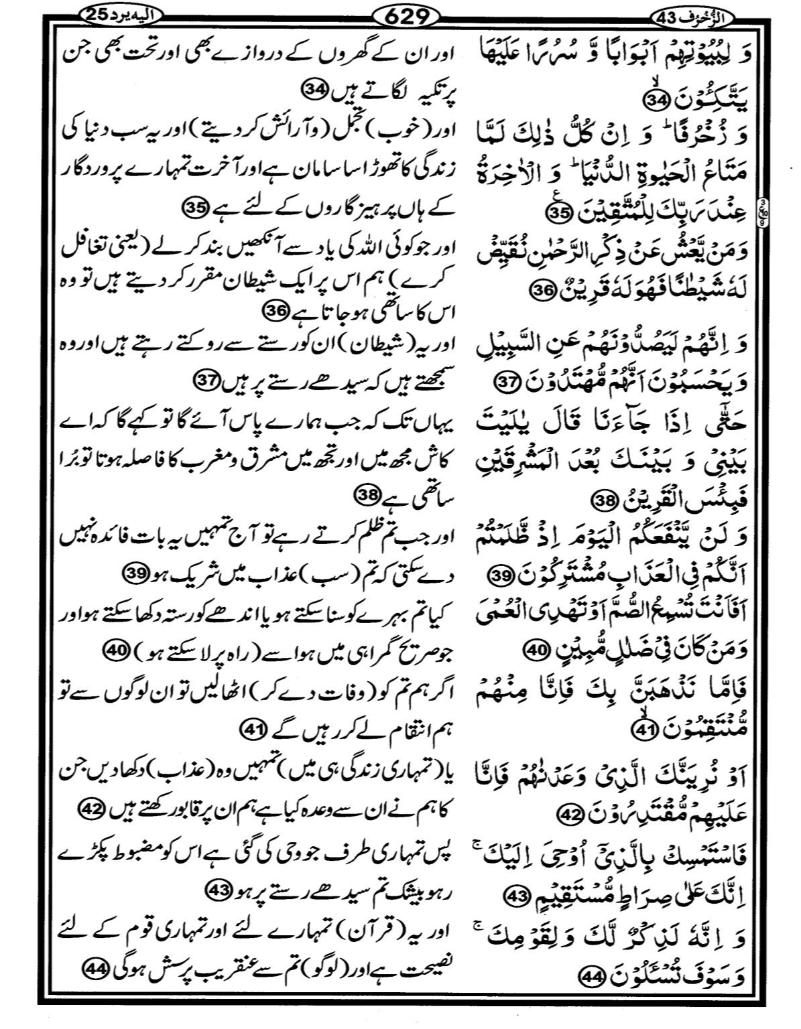 الزّخرف 43
629
اليه يرد 25
وَ لِبُيُوۡتِهِمۡ اَبۡوَابًا وَّ سُرُرًا عَلَيۡهَا
يَتَّكِـُٔوۡنَۙ 34
وَ زُخۡرُفًا​ ؕ وَ اِنۡ كُلُّ ذٰ لِكَ لَمَّا
مَتَاعُ الۡحَيٰوةِ الدُّنۡيَا​ ؕ وَ الۡاٰخِرَةُ
عِنۡدَ رَبِّكَ لِلۡمُتَّقِيۡنَ 35
وَمَنۡ يَّعۡشُ عَنۡ ذِكۡرِ الرَّحۡمٰنِ نُقَيِّضۡ
لَهٗ شَيۡطٰنًا فَهُوَ لَهٗ قَرِيۡنٌ 36
وَ اِنَّهُمۡ لَيَصُدُّوۡنَهُمۡ عَنِ السَّبِيۡلِ
وَ يَحۡسَبُوۡنَ اَنَّهُمۡ مُّهۡتَدُوۡنَ 37
حَتّٰٓى اِذَا جَآءَنَا قَالَ يٰلَيۡتَ
بَيۡنِىۡ وَ بَيۡنَكَ بُعۡدَ الۡمَشۡرِقَيۡنِ
فَبِئۡسَ الۡقَرِيۡنُ 38
وَ لَنۡ يَّنۡفَعَكُمُ الۡيَوۡمَ اِذْ ظَّلَمۡتُمۡ
اَنَّكُمۡ فِى الۡعَذَابِ مُشۡتَرِكُوۡنَ 39
اَفَاَنۡتَ تُسۡمِعُ الصُّمَّ اَوۡ تَهۡدِى الۡعُمۡىَ
وَمَنۡ كَانَ فِىۡ ضَلٰلٍ مُّبِيۡنٍ 40
فَاِمَّا نَذۡهَبَنَّ بِكَ فَاِنَّا مِنۡهُمۡ
مُّنۡتَقِمُوۡنَۙ 41
اَوۡ نُرِيَنَّكَ الَّذِىۡ وَعَدۡنٰهُمۡ فَاِنَّا
عَلَيۡهِمۡ مُّقۡتَدِرُوۡنَ 42
فَاسۡتَمۡسِكۡ بِالَّذِىۡۤ اُوۡحِىَ اِلَيۡكَ​ ۚ
اِنَّكَ عَلٰى صِرَاطٍ مُّسۡتَقِيۡمٍ 43
وَ اِنَّهٗ لَذِكۡرٌ لَّكَ وَ لِقَوۡمِكَ​ ۚ
وَ سَوۡفَ تُسۡـَٔلُوۡنَ 44
اور ان کے گھروں کے دروازے بھی اور تخت بھی جن
پر تکیہ لگاتے ہیں 34
اور (خوب) تجمل (وآرائش کر دیتے) اور یہ سب دنیا کی
زندگی کا تھوڑا سا سامان ہے اور آخرت تمہارے پروردگار
کے ہاں پرہیزگاروں کے لئے ہے 35
اور جو کوئی اللہ کی یاد سے آنکھیں بند کر لے (یعنی تغافل
کرے) ہم اس پر ایک شیطان مقرر کر دیتے ہیں تو وہ
اس کا ساتھی ہو جاتا ہے 36
اور یہ (شیطان) ان کو رستے سے روکتے رہتے ہیں اور وہ
سمجھتے ہیں کہ سیدھے رستے پر ہیں 37
یہاں تک کہ جب ہمارے پاس آئے گا تو کہے گا کہ اے
کاش مجھ میں اور تجھ میں مشرق و مغرب کا فاصلہ ہوتا تو بُرا
ساتھی ہے 38
اور جب تم ظلم کرتے رہے تو آج تمہیں یہ بات فائدہ نہیں
دے سکتی کہ تم (سب) عذاب میں شریک ہو 39
کیا تم بہرے کو سنا سکتے ہو یا اندھے کو رستہ دکھا سکتے ہو اور
جو صریح گمراہی میں ہو اسے (راہ پر لا سکتے ہو) 40
اگر ہم تم کو (وفات دے کر) اٹھا لیں تو ان لوگوں سے تو
ہم انتقام لے کر رہیں گے 41
یا (تمہاری زندگی ہی میں) تمہیں وہ (عذاب) دکھا دیں جن
کا ہم نے ان سے وعدہ کیا ہے ہم ان پر قابو رکھتے ہیں 42
پس تمہاری طرف جو وحی کی گئی ہے اس کو مضبوط پکڑے
رہو بیشک تم سیدھے رستے پر ہو 43
اور یہ (قرآن) تمہارے لئے اور تمہاری قوم کے لئے
نصیحت ہے اور (لوگو) تم سے عنقریب پرسش ہوگی 44